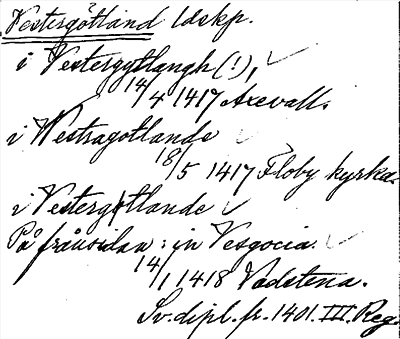 Vestergötland ldskp.
i Vestergytlangh (!),
14/4 1417 Axevall.
i Westragotlande
18/5 1417 Floby kyrka.
i Vestergotlande
På frånsidan: in Vesgocia.
14/1 1418 Vadstena.
Sv. dipl. fr. 1401. III. Reg.